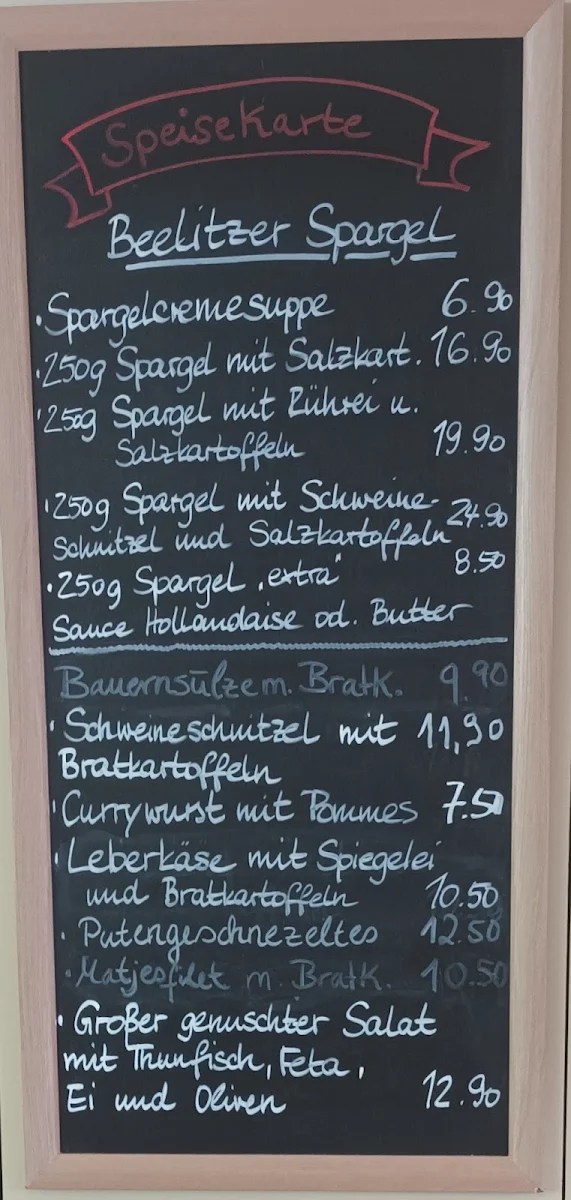 Speisekarte
Beelitzer Spargel
· Spargelcremesuppe 6.90
· 250g Spargel mit Salzkart. 16.90
· 250g Spargel mit Rührei u.
Salzkartoffeln 19.90
· 250g Spargel mit Schweine-
Schnitzel und Salzkartoffeln 24.90
· 250g Spargel "extra" 8.50
Sauce Hollandaise od. Butter
Bauernsülze m. Bratk. 9.90
· Schweineschnitzel mit 11,90
Bratkartoffeln
· Currywurst mit Pommes 7.50
· Leberkäse mit Spiegelei
und Bratkartoffeln 10.50
· Putengeschnezeltes 12.50
· Matjesfilet m. Bratk. 10.50
· Großer gemischter Salat
mit Thunfisch, Feta,
Ei und Oliven 12.90